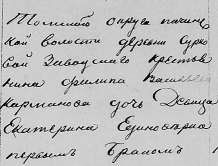 Томскаго округа пачин
кой волости деревни Сурко
вой Заводскаго крестья
нина филипа васильева
карманова дочь Девица
Екатерина Единоверка
первымъ Бракомъ